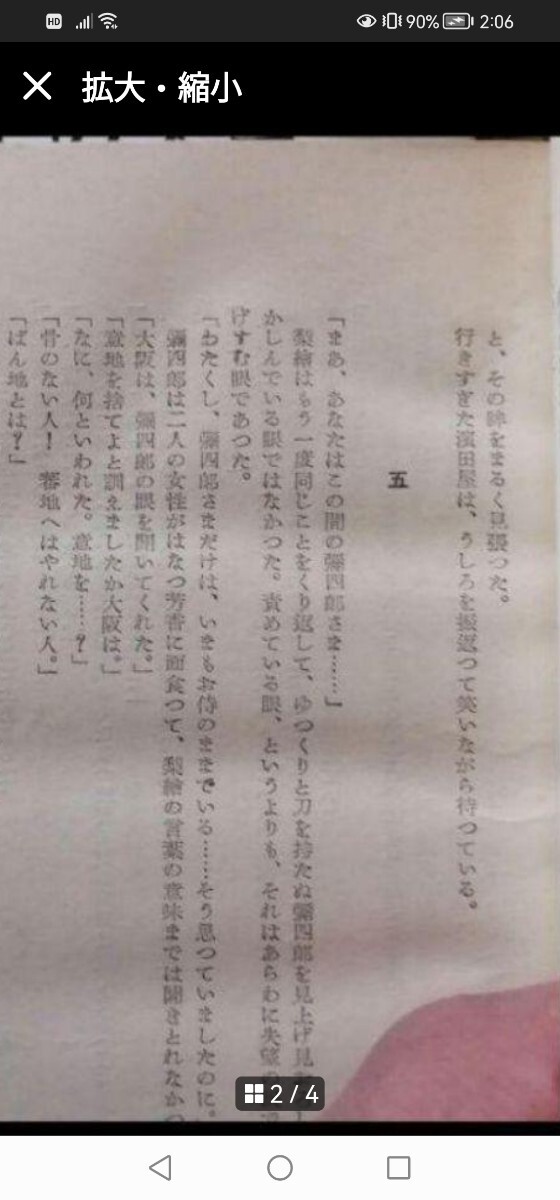 HD
90%
2:06
拡大・縮小
と、その眸をまるく見張つた。
行きすぎた濱田屋は、うしろを振返つて笑いながら待つている。
五
「まあ、あなたはこの間の彌四郎さま……」
梨繪はもう一度同じことをくり返して、ゆつくりと刀を持たぬ彌四郎を見上げ見
かしんでいる眼ではなかつた。責めている眼、というよりも、それはあらわに失望
げすむ眼であつた。
「わたくし、彌四郎さまだけは、いまもお侍のままでいる……そう思つていましたのに。
彌四郎は二人の女性がはなつ芳香に面食つて、梨繪の言葉の意味までは聞きとれなかつ
「大阪は、彌四郎の眼を開いてくれた。」
「意地を捨てよと訓えましたか大阪は。」
「なに、何といわれた。意地を……?」
「骨のない人！ 蕃地へはやれない人。」
「ばん地とは？」
2 / 4